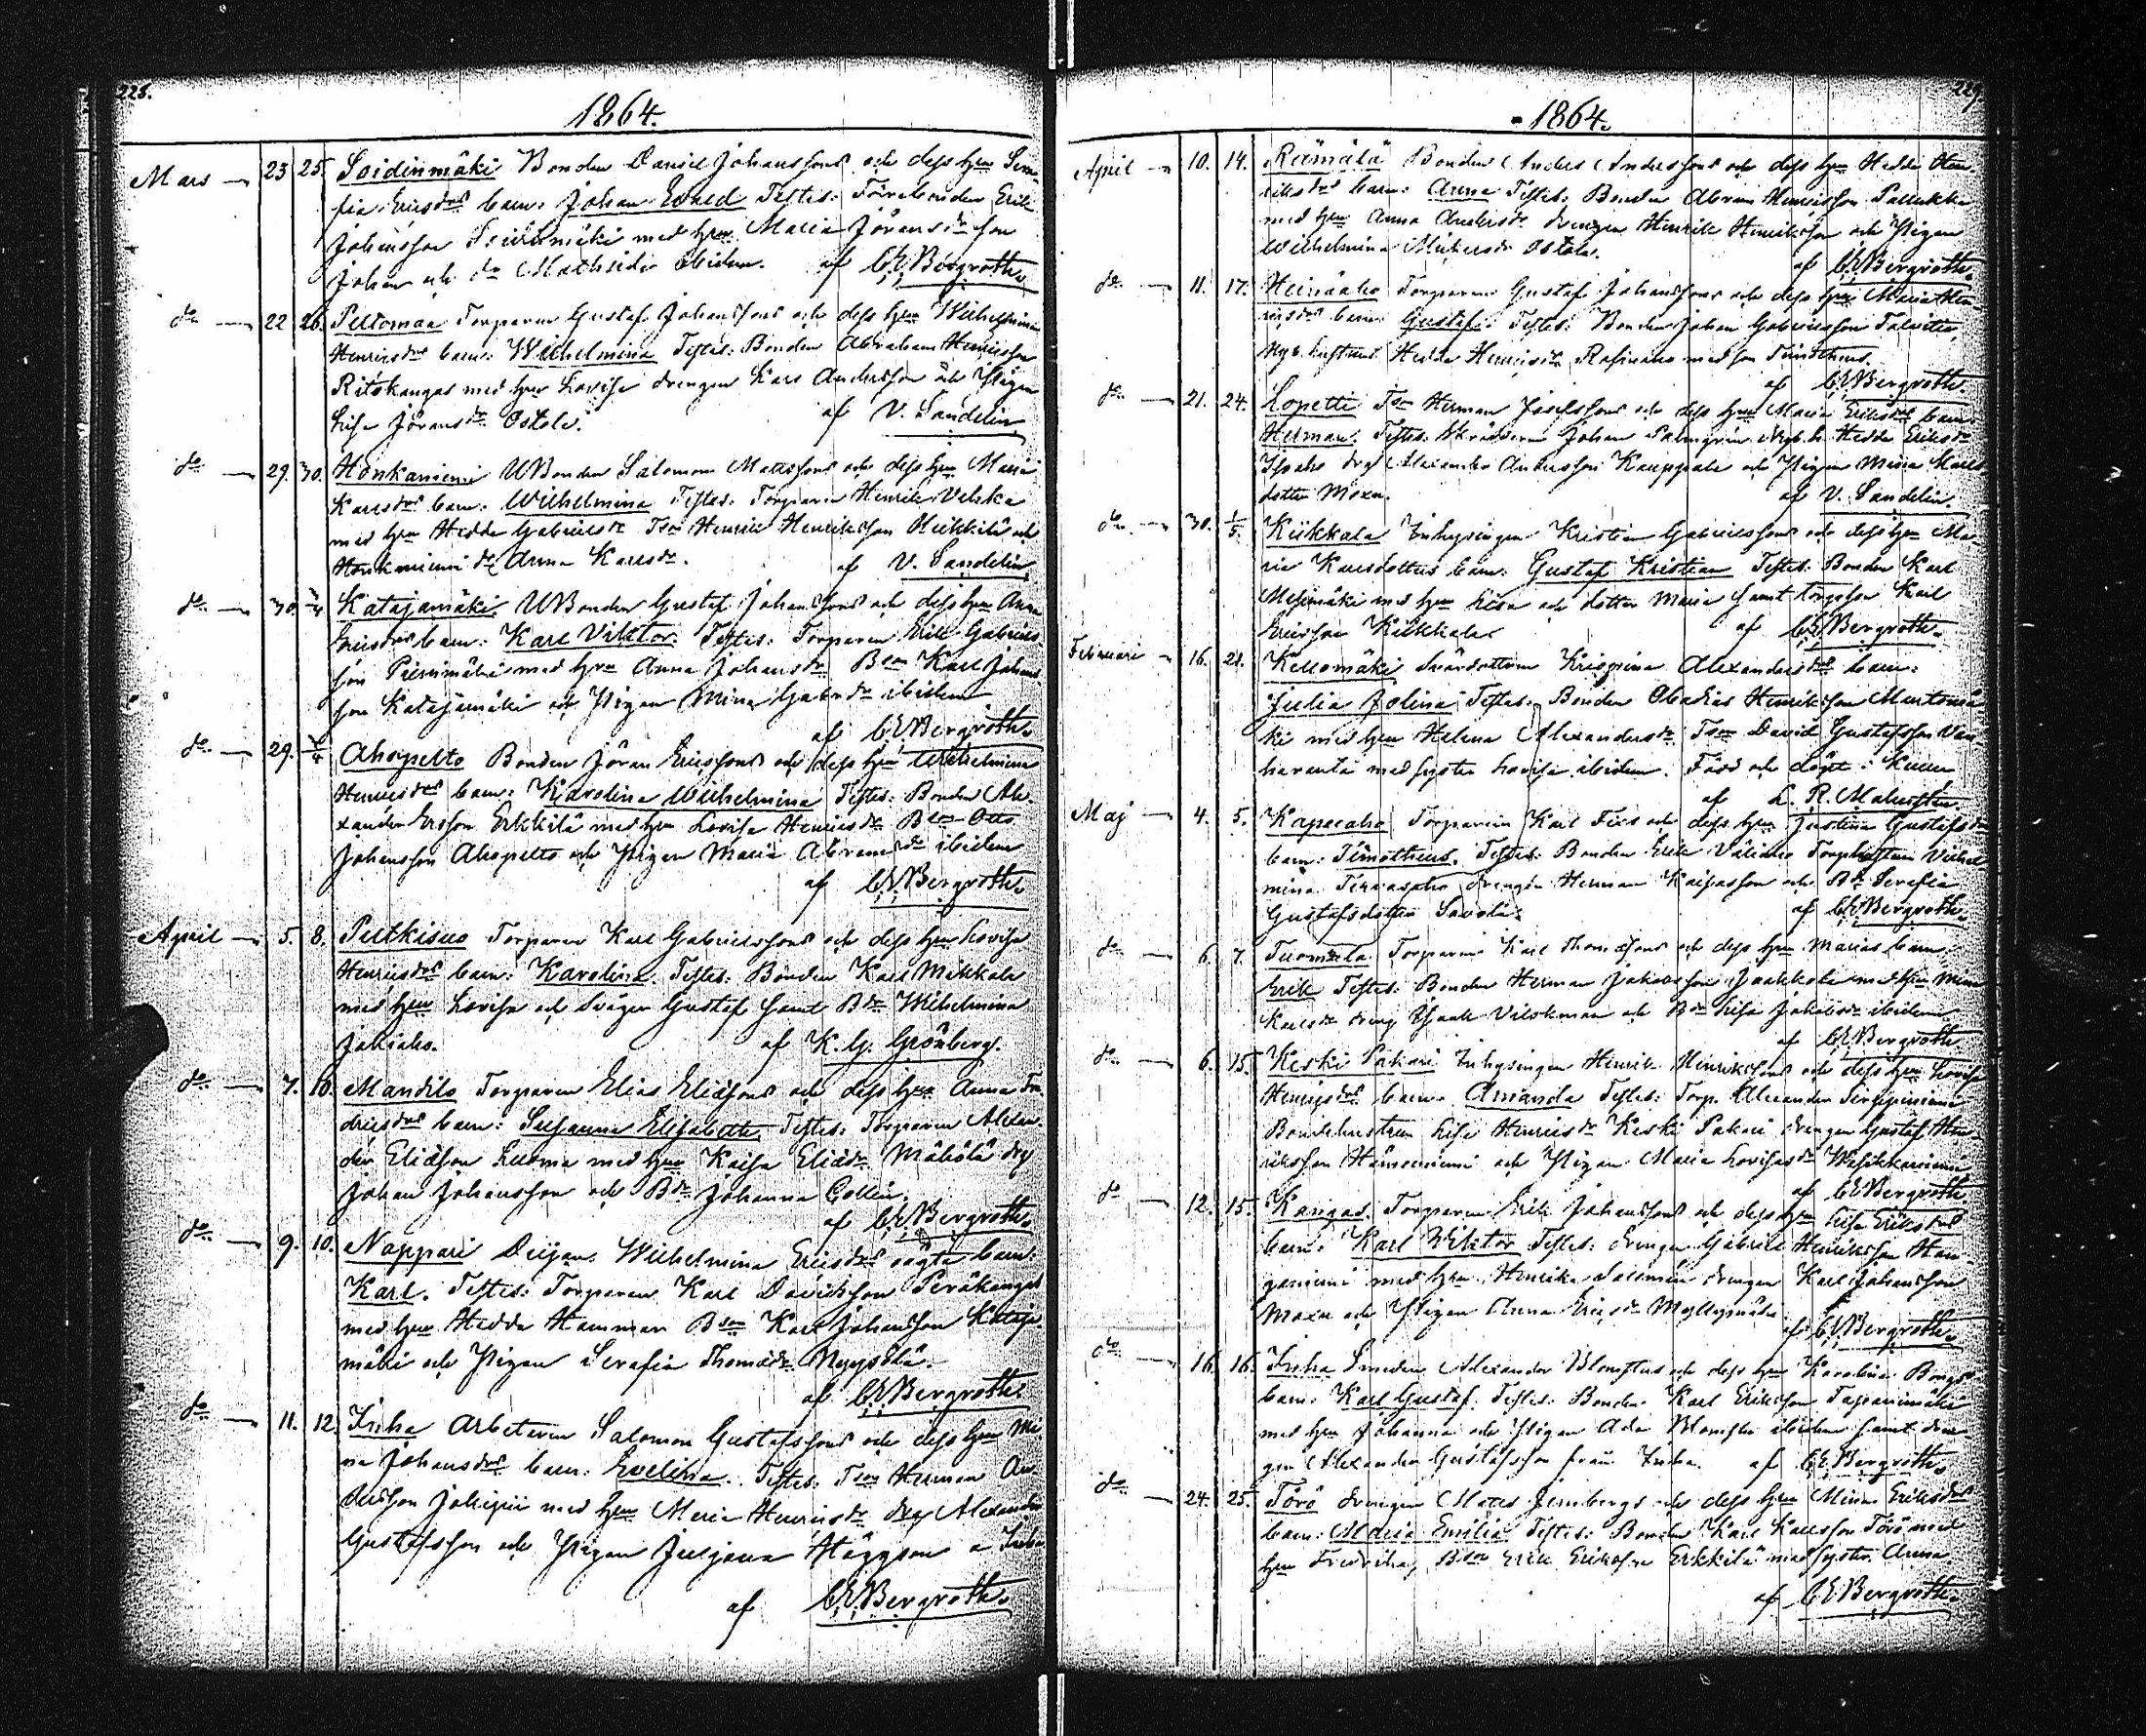 228.
1864.
Mars 23 25. Soidinmäki Bonden Daniel Johanssons och dess hru Sera-
fia Ericsdrs barn: Johan Evert Testes: Förrebonden Erik
Johansson Soidinmäki med hru Maria Jöransdr son
Johan och dr Mathilda ibidem. af C.E. Bergroth.
do 22 26. Peltomaa Torparen Gustaf Johanssons och dess hru Wilhelmina
Henricsdrs barn: Wilhelmina Testes: Bonden Abraham Henricsson
Ritokangas med hru Lovisa drengen Karl Andersson och Pigan
Lisa Jöransdr Ostola. af V. Sandelin
do 29. 30. Honkaniemi UBonden Salomon Mattssons och dess hru Maria
Karlsdrs barn: Wilhelmina Testes: Torparen Henrik Velska
med hru Hedda Gabrielsdr Tson Henrik Henriksson Heikkilä och
Honkaniemi dr Anna Karlsdr. af V. Sandelin
do 30. 3/4 Katajamäki UBonden Gustaf Johanssons och dess hru Anna
Ericsdrs barn: Karl Viktor. Testes: Torparen Erik Gabriels-
son Pienimäki med hru Anna Johansdr Bson Karl Johans-
son Katajamäki och Pigan Mina Gabrsdr ibidem
af C.E. Bergroth.
do 29. /4 Ahopelto Bonden Jöran Ericssons och dess hru Wilhelmina
Henricsdrs barn: Karolina Wilhelmina Testes: Bonden Ale-
xander Ersson Erkkilä med hru Lovisa Henricsdr Bson Otto
Johansson Ahopelto och Pigan Maria Abramsdr ibidem
af C.E. Bergroth.
April 5. 8. Putkisuo Torparen Karl Gabrielssons och dess hru Lovisa
Henricsdrs barn: Karolina. Testes: Bonden Karl Mikkala
med hru Lovisa och Svågern Gustaf samt Bdr Wilhelmina
Jahiaho. af K. G. Grönberg.
do 7. 10. Mandila Torparen Elias Eliassons och dess hru Anna Fre-
driksdrs barn: Susanna Elisabeth. Testes: Torparen Alexan-
der Eliasson Luoma med hru Kaisa Eliasdr Mäkelä drg
Johan Johansson och Bdr Johanna Collin.
af C.E. Bergroth.
do 9. 10. Näppari Deijan Wilhelmina Ericsdrs oägta barn:
Karl. Testes: Torparen Karl Davidsson Peräkangas
med hru Hedda Hamman Bson Karl Johansson Kataja-
mäki och Pigan Serafia Thomasdr Nyyssölä.
af C.E. Bergroth.
do 11. 12. Inha Arbetaren Salomon Gustafssons och dess hru Ma-
ria Johansdrs barn: Evelina. Testes: Tson Herman An-
dersson Jokipii med hru Maria Henricsdr drg Alexander
Gustafsson och Pigan Juljana Häggson a Inha
af C.E. Bergroth.
229.
1864.
April 10. 14. Rämälä Bonden Anders Anderssons och dess hru Hedda Hen-
riksdrs barn: Anna Testes: Bonden Abram Henricsson Pallukka
med hru Anna Andersdr drengen Henrik Henriksson och Pigan
Wilhelmina Mickelsdr Ostola.
af C.E. Bergroth.
do 11. 17. Heinäaho Torparen Gustaf Johanssons och dess hru Maria Hen-
ricsdrs barn: Gustaf. Testes: Bonden Johan Gabrielsson Talvitie,
Nyb. hustrun Hedda Henricsdr med son Timotheus.
af C.E. Bergroth.
do 21. 24. Lopetti Tson Herman Josefssons och dess hru Maria Eriksdrs barn:
Herman. Testes: Skräddaren Johan Palmgren Nyb.h. Hedda Eriksdr
drg Alexander Andersson Kauppala och Pigan Mina Matts
dotter Moxu. af V. Sandelin.
do 30. 1/5 Kiikkala Inhysingen Kristian Gabrielssons och dess hru Ma-
ria Karlsdotters barn: Gustaf Kristian Testes: Bonden Karl
Mesimäki med hru Lisa och dotter Maria samt torpson Karl
Ericsson Kiikkala. af C.E. Bergroth.
Februari 16. 21. Kellomäki Svärdottern Krispina Alexandersdrs barn:
Julia Jolina Testes: Bonden Obadias Henriksson Murtomä-
ki med hru Helena Alexandersdr Tson David Gustafsson
med syster Lovisa ibidem. Född och döpt i
af L. R. Malmstén.
Maj 4. 5. Kapeeaho Torparen Karl och dess hru Justina Gustafsdrs
barn: Timotheus. Testes: Bonden Erik Väliaho Torphustrun Vilhel
mina drengen Herman Kaisasson och Bdr Serafia
Gustafsdotter Savola. af C.E. Bergroth.
do 6. 7. Tuomala Torparen Karl Thomassons och dess hru Marias barn:
Erik Testes: Bonden Herman Jakobsson Jaakkola med hru Mina
Karlsdr dreng Isaak Vilokman och Bdr Lisa Jakobsdr ibidem
af C.E. Bergroth.
do 6. 15. Keski Pakari Inhysingen Henrik Henrikssons och dess hru Lovisa
Henriksdrs barn: Amanda Testes: Torp. Alexander
Bondehustrun Lisa Henricsdr Keski Pakari drengen Gustaf Hen-
riksson Hämeeniemi och Pigan Maria Lovisasdr
af C.E. Bergroth
do 12. 15. Kangas. Torparen Erik Johanssons och dess hru Lisa Eriksdrs
barn: Karl Viktor Testes: drengen Gabriel Henriksson Han-
ganiemi med hru Henrika Salomon drengen Karl Johansson
Moxu och Pigan Anna Ericsdr Myllymäki
af C.E. Bergroth.
do 16. 16. Inha Smeden Alexander Blomster och dess hru Karolina
barn: Karl Gustaf. Testes: Bonden Karl Eriksson Tapanimäki
med hru Johanna och Pigan Ada Blomster ibidem samt dren-
gen Alexander Gustafsson från Inha. af C.E. Bergroth.
do 24. 25. Törö drengen Matts Jernbergs och dess hru Mina Eriksdrs
barn: Maria Emilia Testes: Bonden Karl Karlsson Törö med
hru Fredrika, Bson Erik Eriksson Erkkilä med syster Anna.
af C.E. Bergroth.